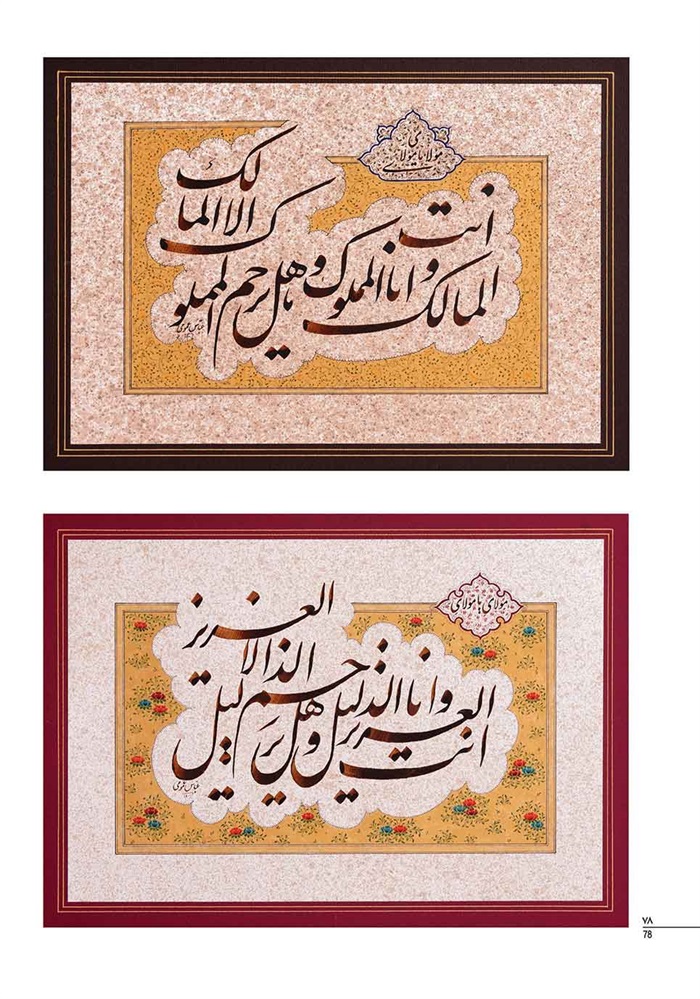 مولای یا مولای
انت المالک و انا المملوک و هل یرحم المملوک الا المالک
مولای یا مولای
انت العزیز و انا الذلیل و هل یرحم الذلیل الا العزیز
۷۸
78